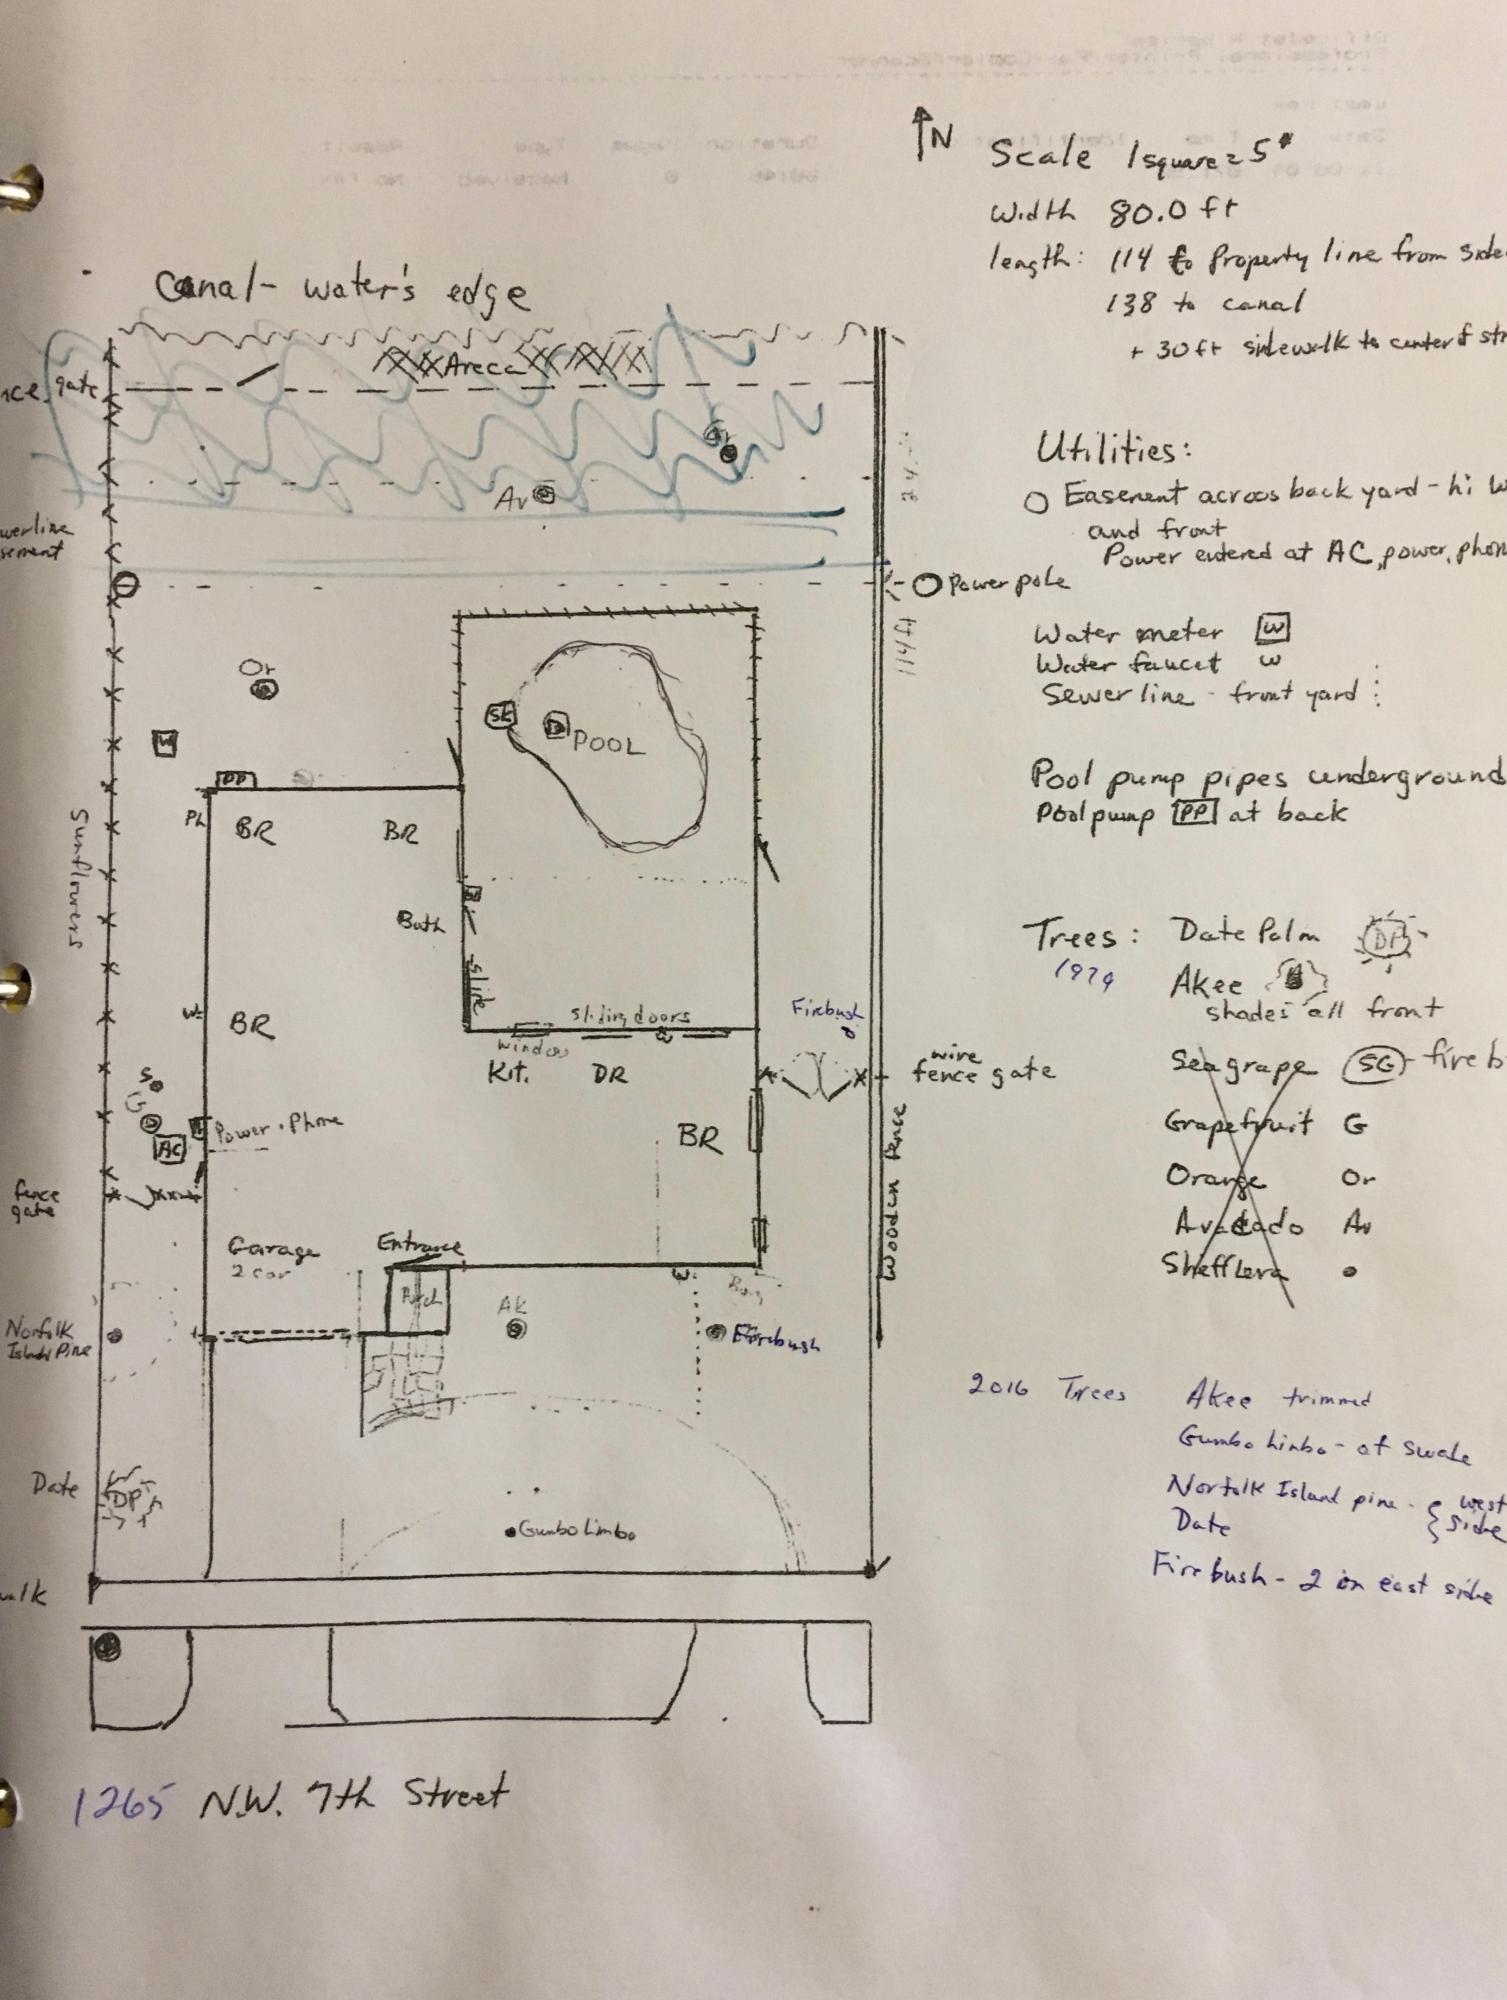 N
Scale 1 square = 5'
Width 80.0 ft
length: 114 to Property line from side
138 to canal
+ 30 ft sidewalk to center of str
Canal - water's edge
Areca
gate
Gr
Av
24
114 ft
Power pole
Utilities:
Easement across back yard - hi
and front
Power entered at AC, power, phon
Water meter W
Water faucet w
Sewer line - front yard :
Pool pump pipes underground
Pool pump PP at back
Or
W
SK
D
POOL
PP
Ph
BR
BR
Sunflowers
Bath
slide
BR
sliding doors
window
w
Kit.
DR
Firebush
wire
fence gate
S
G
AC
Power + Phone
BR
Wooden Fence
fence
gate
Garage
2 car
Entrance
Porch
w
AK
Firebush
Norfolk
Island Pine
Date
DP
Gumbo Limbo
walk
Trees: Date Palm DP
1979
Akee
shades all front
Sea grape SG - fire b
Grapefruit G
Orange Or
Avocado Av
Shefflera
2016 Trees Akee trimmed
Gumbo Limbo - at swale
Norfolk Island pine - west
Date side
Firebush - 2 on east side
1265 N.W. 7th Street